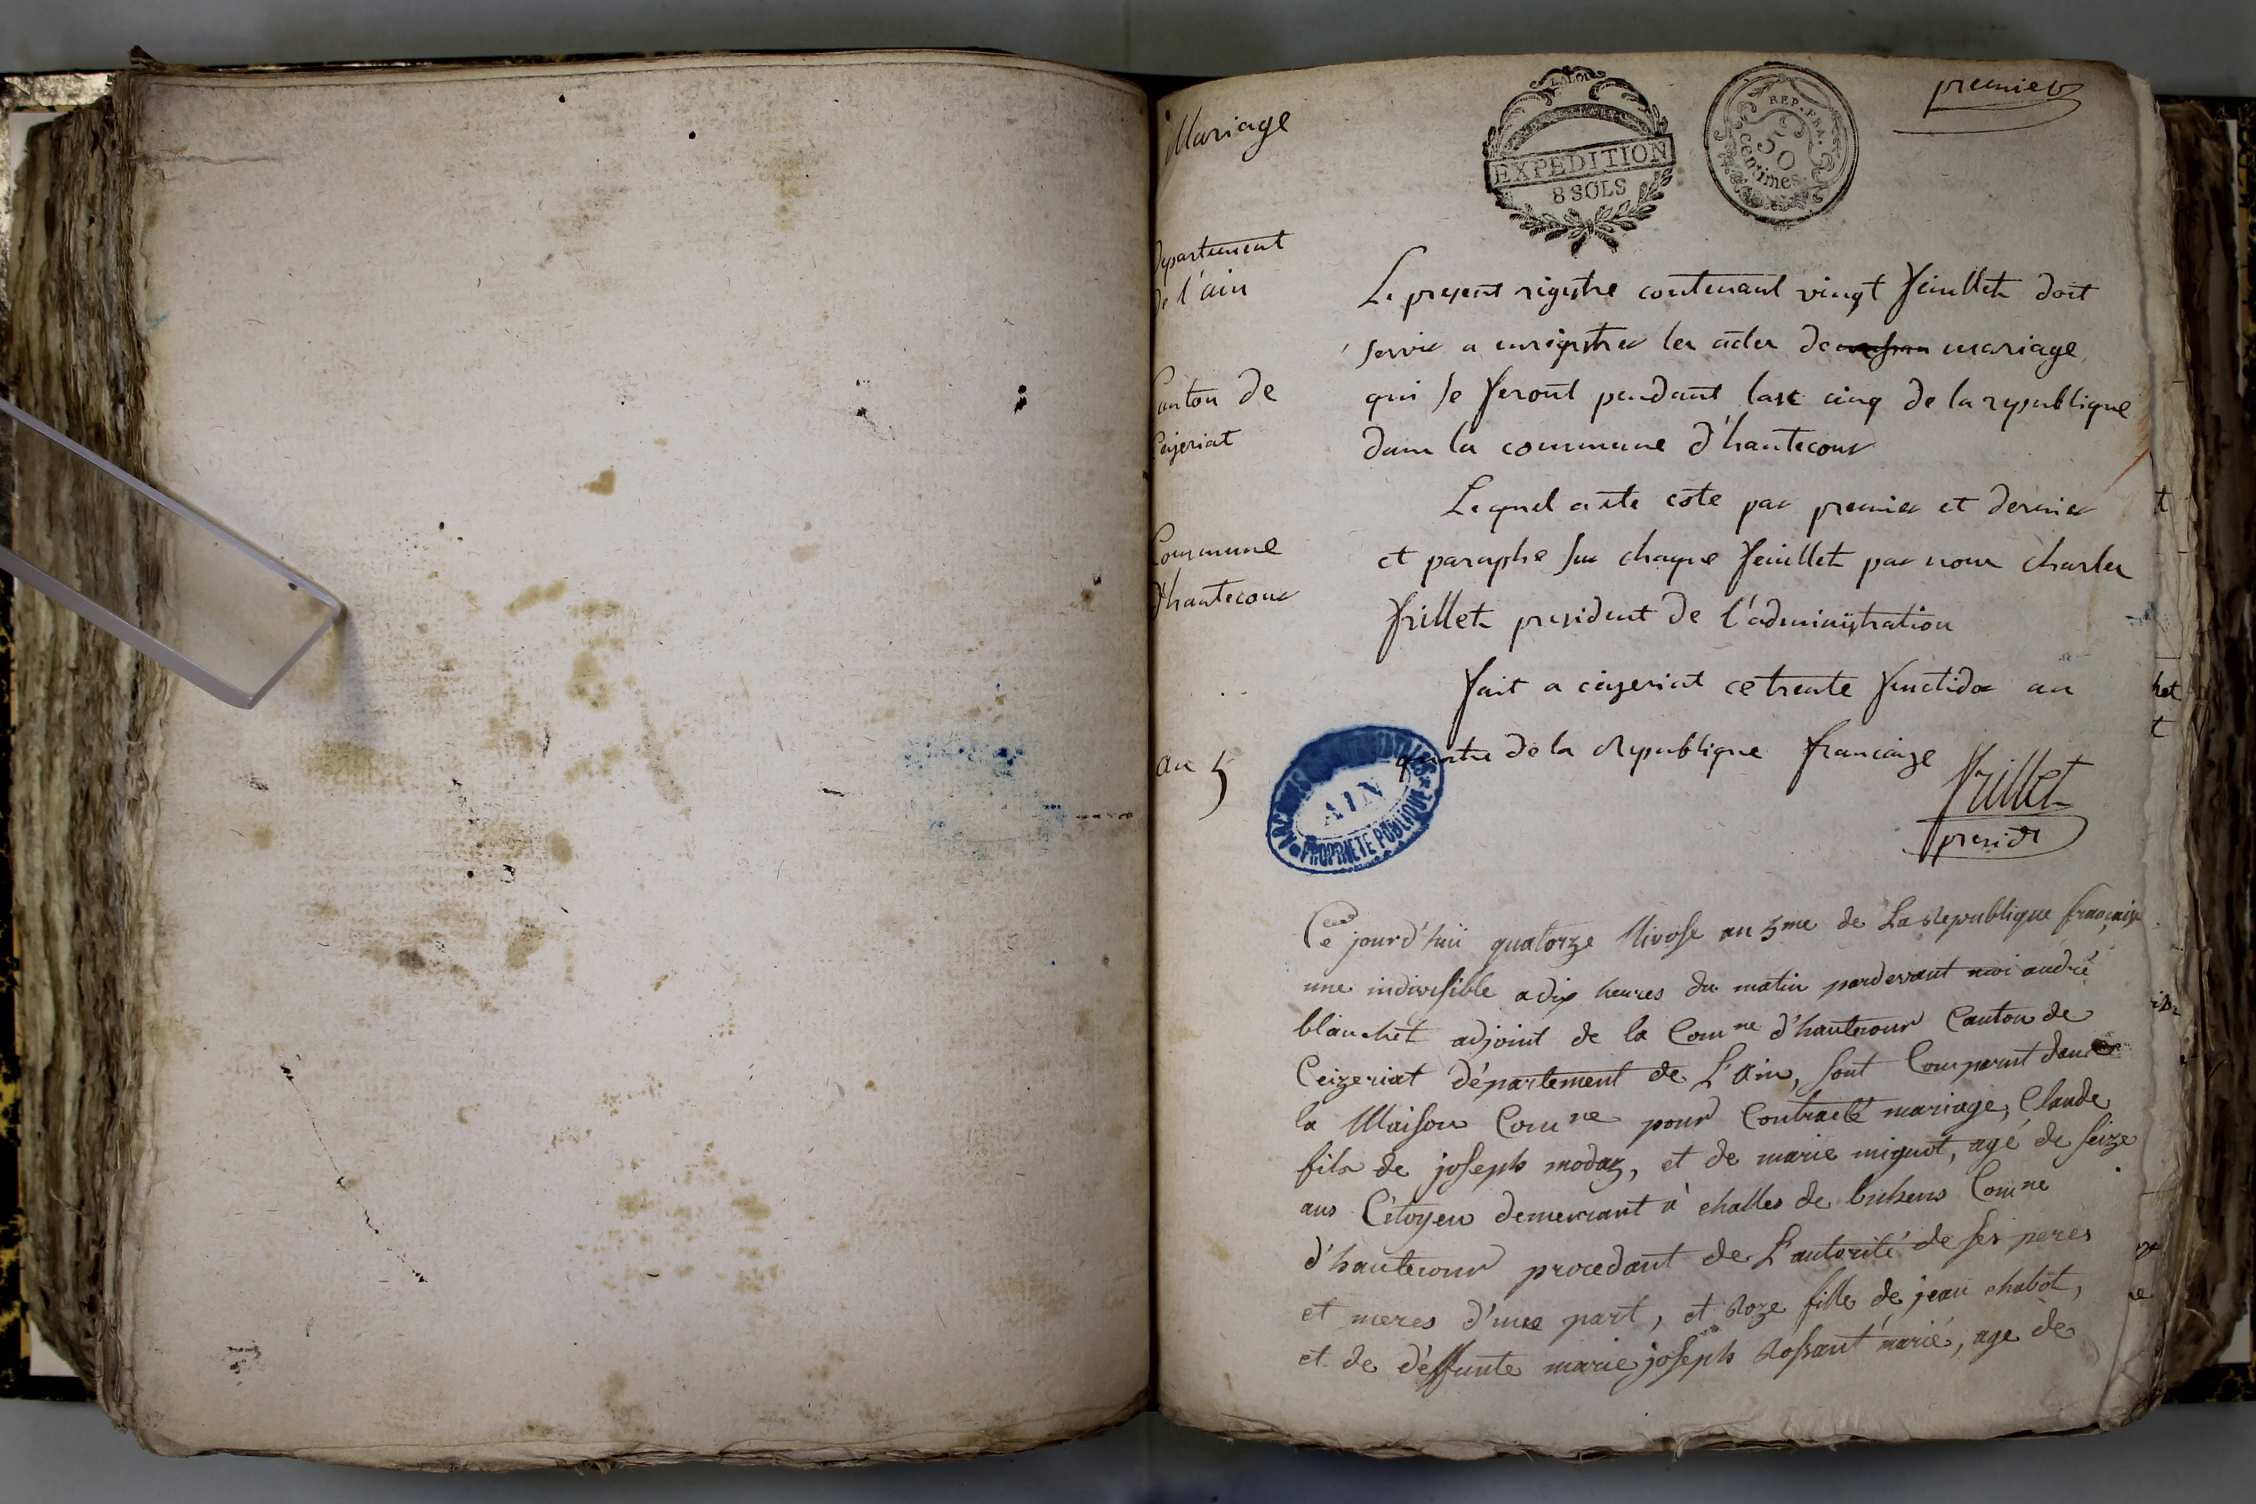 Mariage
LA LOI
EXPEDITION
8 SOLS
REP. FRA.
50
centimes
premier
Departement
de l'ain
Canton de
Ceizeriat
Commune
d'hautecour
an 5
Le present registre contenant vingt feuillets doit
servir a enregistrer les actes de mariage
qui se feront pendant lan cinq de la republique
dans la commune d'hautecour
Lequel a ete coté par premier et dernier
et paraphe sur chaque feuillet par nous charles
frillet president de l'administration
fait a ceizeriat ce trente fructidor an
quatre de la Republique francaise
frillet
presidt
ARCHIVES DEPARTEMENTALES
AIN
PROPRIETE PUBLIQUE
Ce jourd'huï quatorze Nivose an 5me de La Republique française
une indivisible a dix heures du matin pardevant moi andré
blanchet adjoint de la Comne d'hautecour Canton de
Ceizeriat département de L'Ain, sont Comparut dans
la Maison Comne pour Contracté mariage, Claude
fils de joseph modaz, et de marie mignot, agé de seize
ans Citoyen demeurant à challes de Comne
d'hautecour procedant de L'autorité de ses peres
et meres d'une part, et Roze fille de jean chabot,
et de déffunte marie joseph Rossant marié, age de